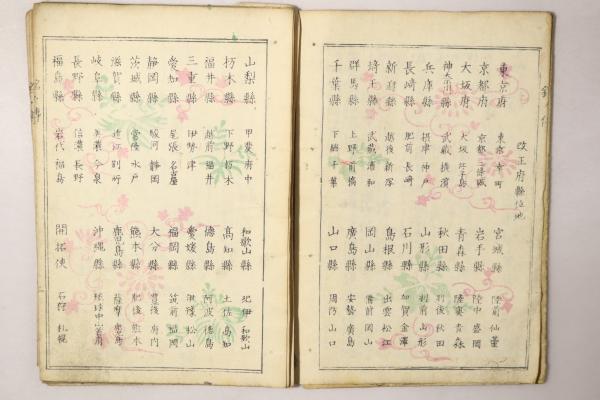 改正府縣位地
東京府 東京 幸町
京都府 京都 二條城
大坂府 大坂 江子島
神奈川縣 武蔵 横濱
兵庫縣 摂津 神戸
長崎縣 肥前 長崎
新潟縣 越後 新潟
埼玉縣 武蔵 浦和
群馬縣 上野 前橋
千葉縣 下総 千葉
宮城縣 陸前 仙臺
岩手縣 陸中 盛岡
青森縣 陸奥 青森
秋田縣 羽後 秋田
山形縣 羽前 山形
石川縣 加賀 金澤
島根縣 出雲 松江
岡山縣 備前 岡山
廣島縣 安藝 廣島
山口縣 周防 山口
山梨縣 甲斐 府中
栃木縣 下野 栃木
福井縣 越前 福井
三重縣 伊勢 津
愛知縣 尾張 名古屋
静岡縣 駿河 静岡
茨城縣 常陸 水戸
滋賀縣 近江 別所
岐阜縣 美濃 今泉
長野縣 信濃 長野
福島縣 岩代 福島
和歌山縣 紀伊 和歌山
高知縣 土佐 高知
徳島縣 阿波 徳島
愛媛縣 伊豫 松山
福岡縣 筑前 福岡
大分縣 豊後 府内
熊本縣 肥後 熊本
鹿児島縣 薩摩 鹿児島
沖縄縣 琉球 中山首府
開拓使 石狩 札幌